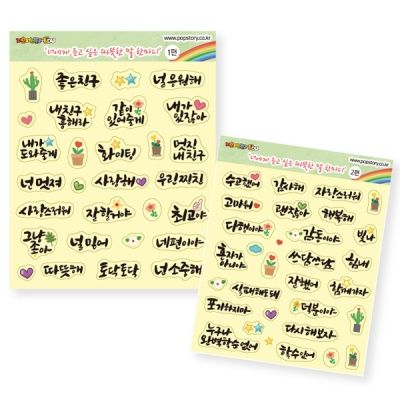 www.popstory.co.kr
'너에게 듣고 싶은 따뜻한 말 한마디'
1편
좋은친구
널 응원해
내친구
좋해라
같이
있어줄게
내가
있잖아
내가
도와줄게
화이팅
멋진
내친구
넌 멋져
사랑해
우린찌치
사랑스러워
잘할거야
최고야
그냥
좋아
널 믿어
네편이야
따뜻해
토닥토닥
넌소중해
www.popstory.co.kr
'너에게 듣고 싶은 따뜻한 말 한마디'
2편
수고했어
감사해
자랑스러워
고마워
괜찮아
행복해
다행이야
감동이야
빛나
혼자가
아니야
쓰담쓰담
힘내
잘했어
함께가자
실패해도돼
포기하지마
덕분이야
다시해보자
누구나
완벽할순없어
할수있어